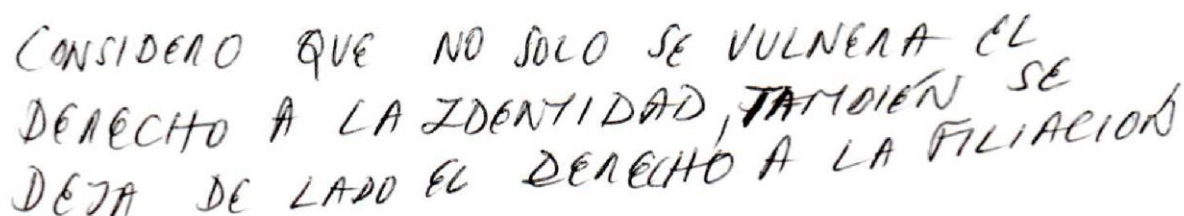 CONSIDERO QUE NO SOLO SE VULNERA EL
DERECHO A LA IDENTIDAD, TAMBIÉN SE
DEJA DE LADO EL DERECHO A LA FILIACIÓN